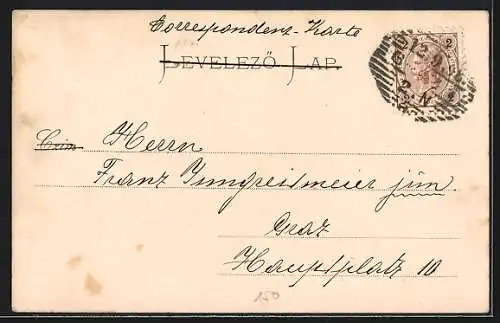 Correspondenz-Karte
LEVELEZŐ LAP.
Czim Herrn
Franz Jungreitmeier jun.
Graz
Hauptplatz 10
150